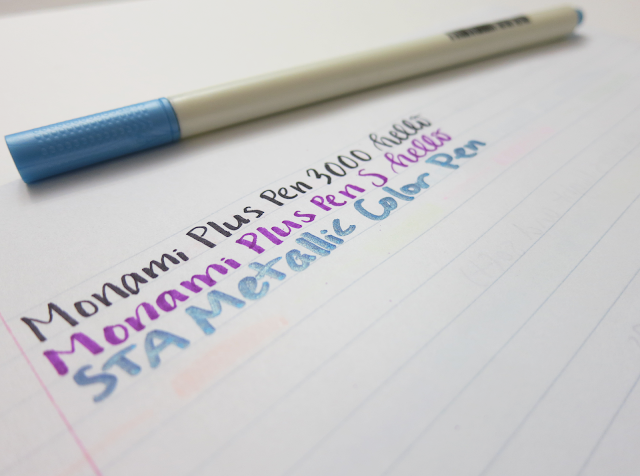 Monami Plus Pen 3000 hello
Monami Plus Pen S hello
STA Metallic Color Pen